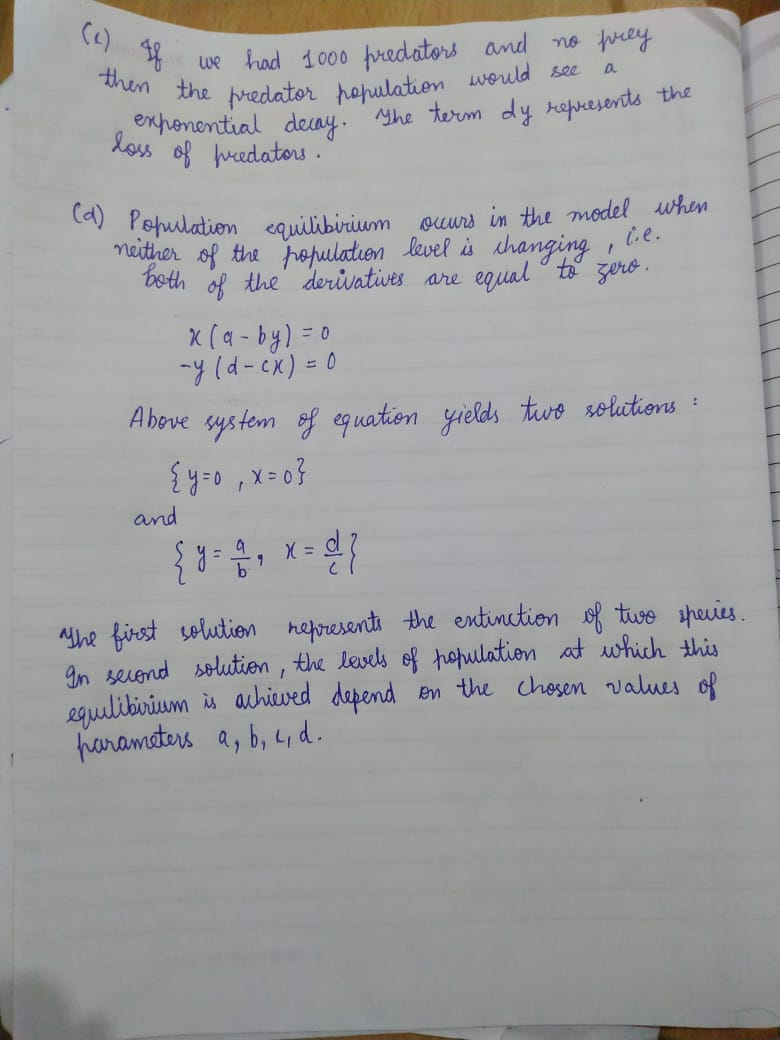 (c) If we had 1000 predators and no prey
then the predator population would see a
exponential decay. The term dy represents the
loss of predators.
(d) Population equilibirium occurs in the model when
neither of the population level is changing, i.e.
both of the derivatives are equal to zero.
x(a-by) = 0
-y(d-cx) = 0
Above system of equation yields two solutions :
{y=0, x=0}
and
{y = a/b, x = d/c}
The first solution represents the extinction of two species.
In second solution, the levels of population at which this
equilibirium is achieved depend on the chosen values of
parameters a, b, c, d.